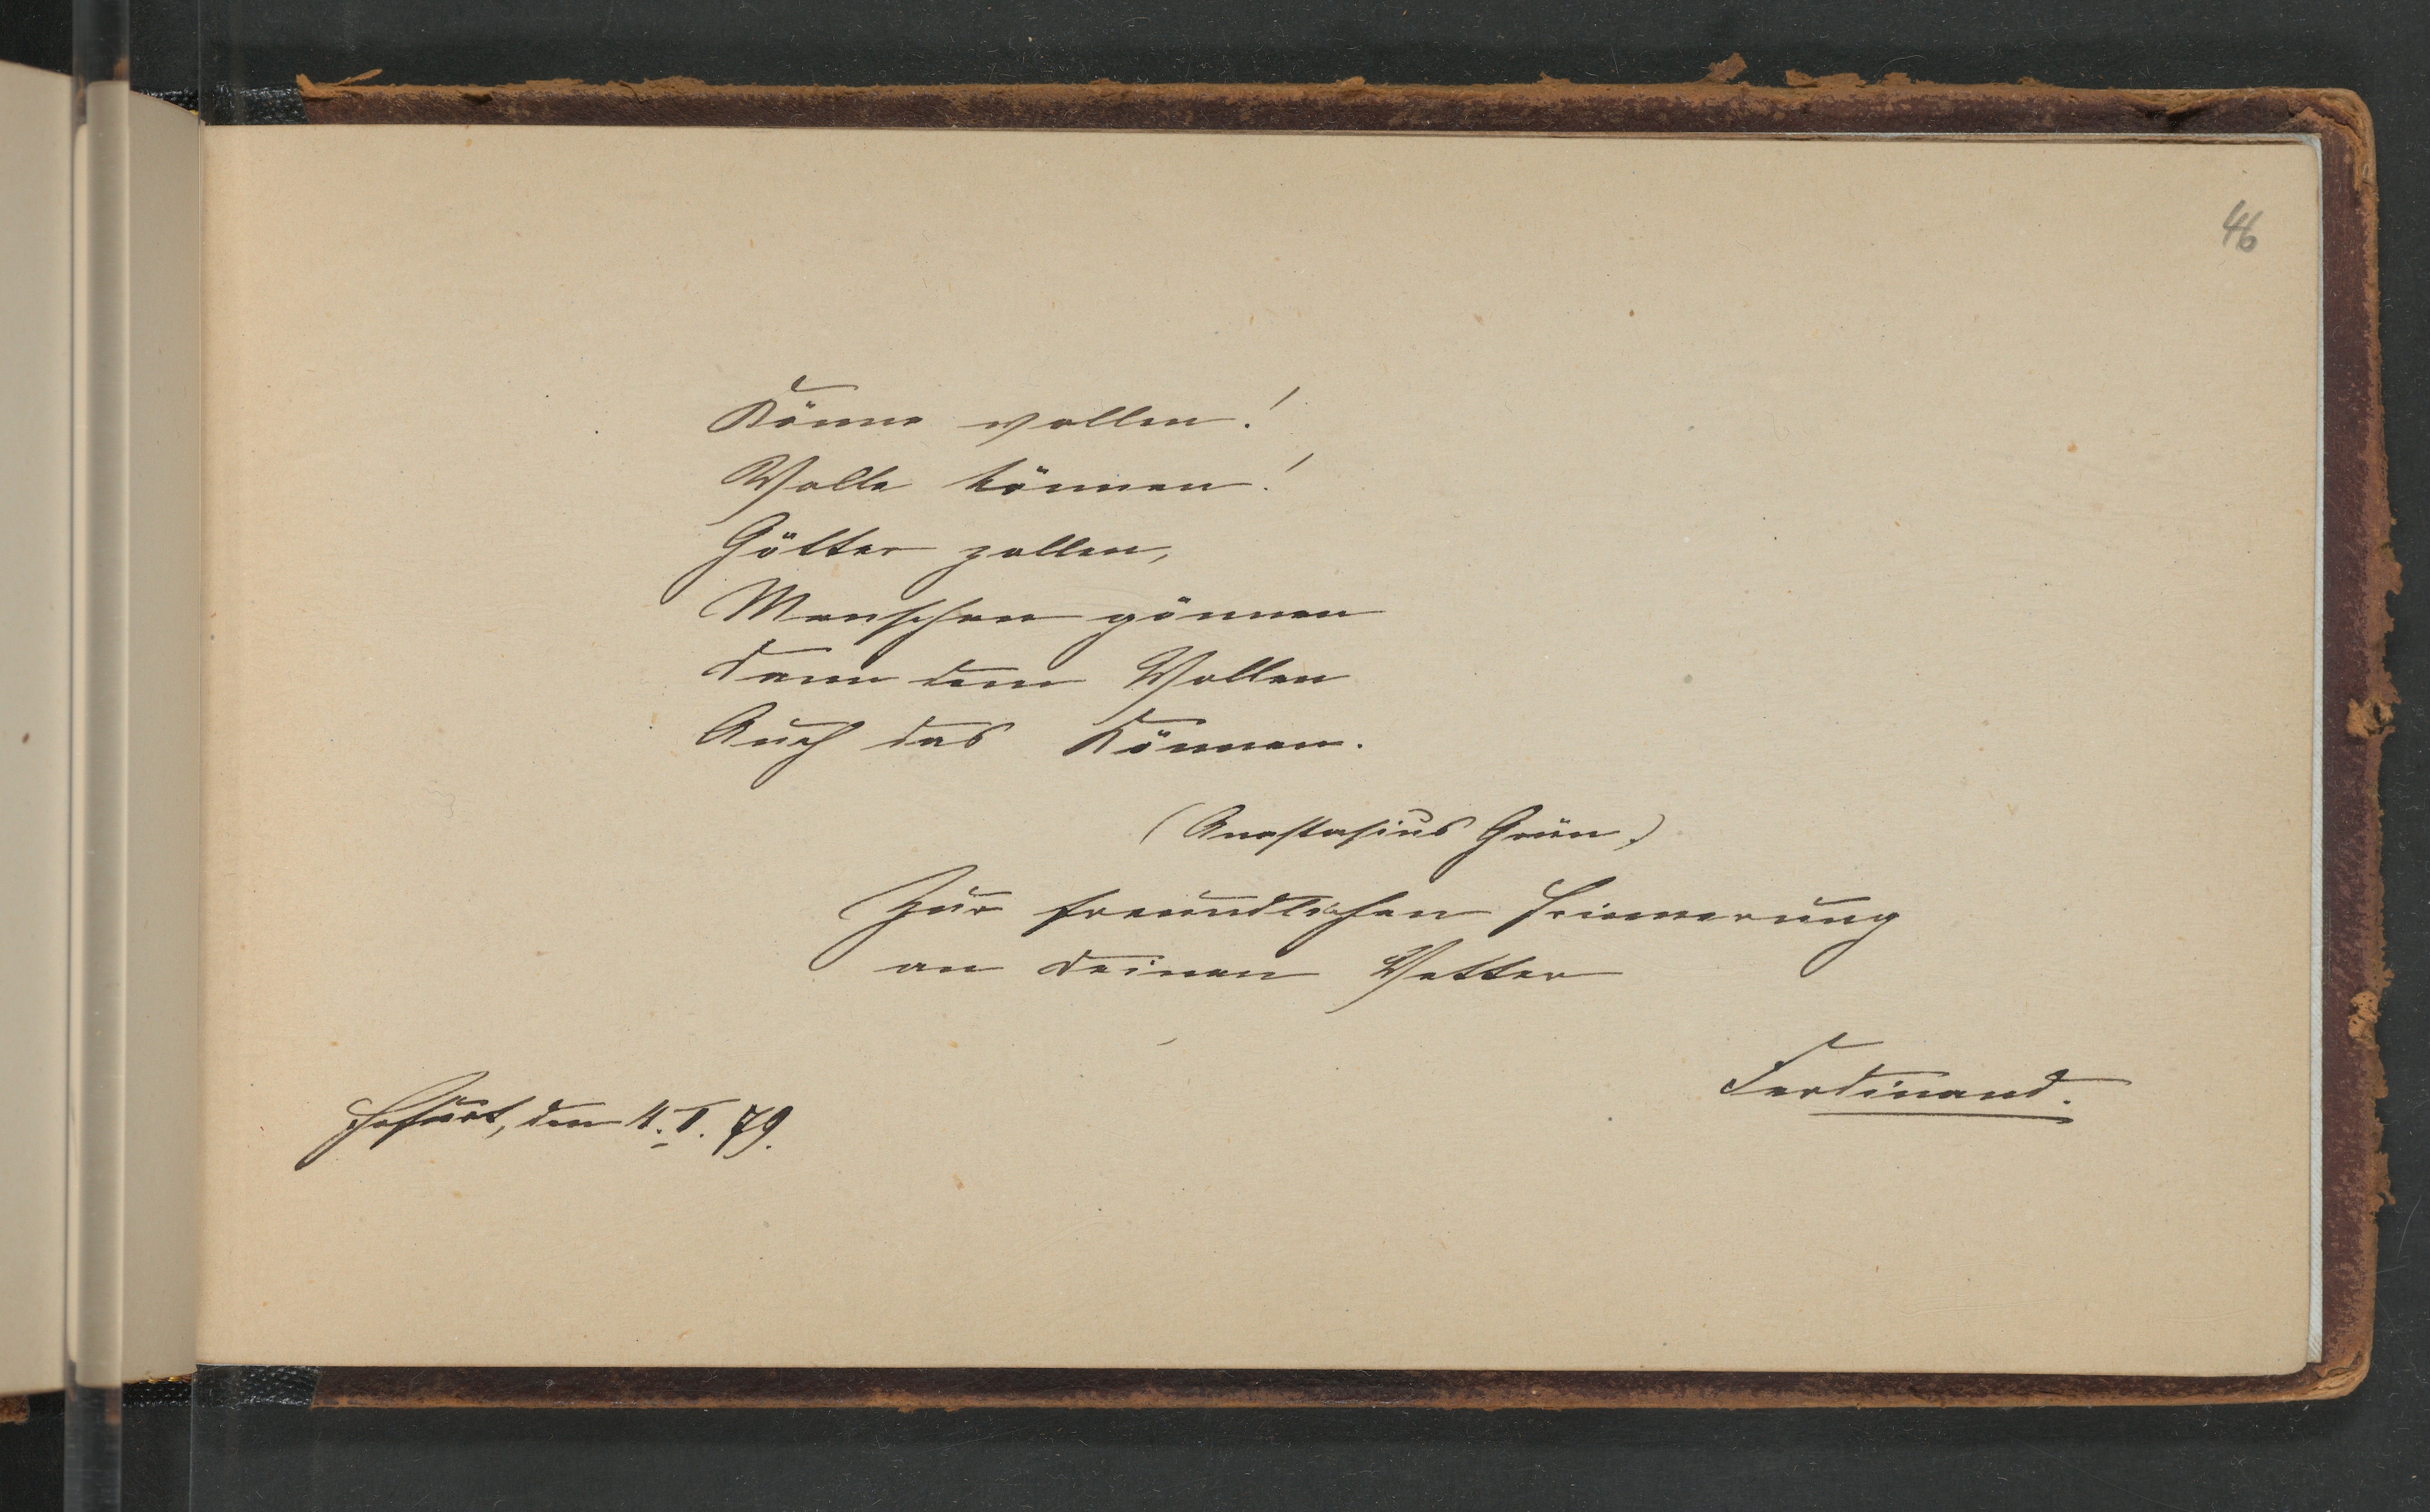 46
Könne wollen!
Wolle können!
Götter zollen,
Menschen gönnen
Dann dem Wollen
Auch das Können.
(Anastasius Grün.)
Zur freundlichen Erinnerung
an Deinen Vetter
Ferdinand.
Erfurt, den 4. I. 79.